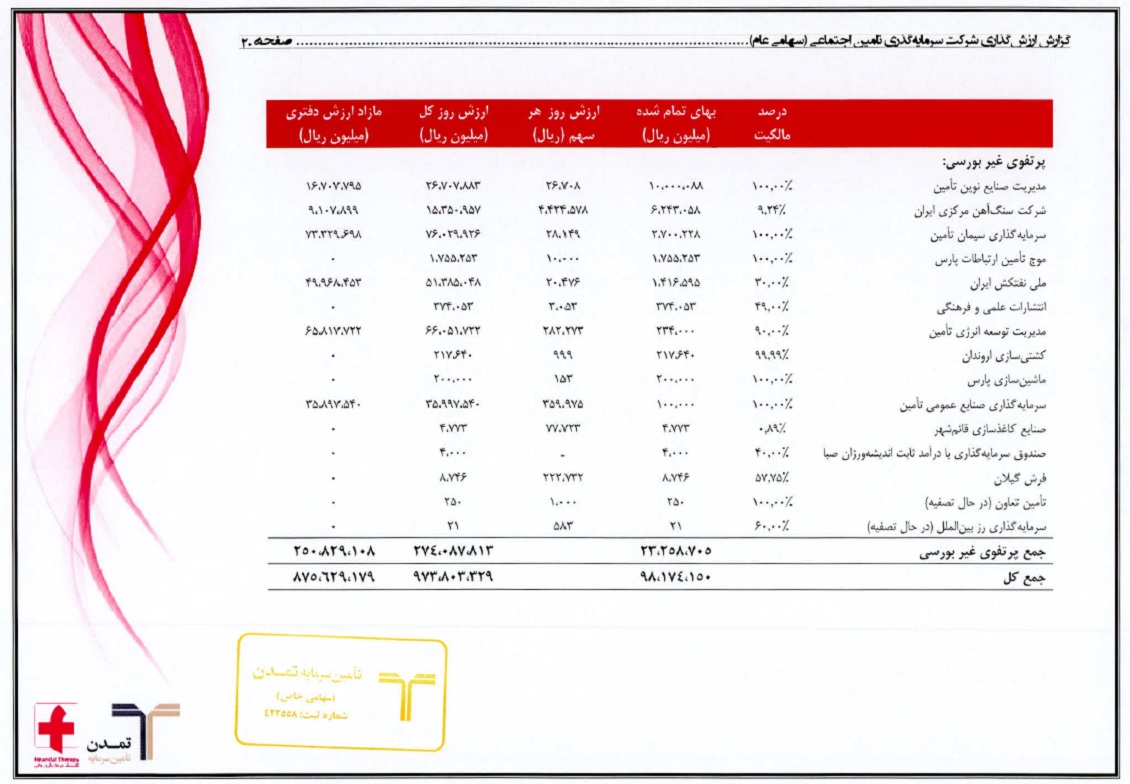 گزارش ارزش گذاری شرکت سرمایه‌گذاری تامین اجتماعی (سهامی عام)........................................................................................................ صفحه ۲۰
درصد مالکیت بهای تمام شده (میلیون ریال) ارزش روز هر سهم (ریال) ارزش روز کل (میلیون ریال) مازاد ارزش دفتری (میلیون ریال)
پرتفوی غیر بورسی:
مدیریت صنایع نوین تأمین ۱۰۰,۰۰٪ ۱۰,۰۰۰,۰۸۸ ۲۶,۷۰۸ ۲۶,۷۰۷,۸۸۳ ۱۶,۷۰۷,۷۹۵
شرکت سنگ‌آهن مرکزی ایران ۹,۲۴٪ ۶,۲۴۳,۰۵۸ ۴,۴۲۴,۵۷۸ ۱۵,۳۵۰,۹۵۷ ۹,۱۰۷,۸۹۹
سرمایه‌گذاری سیمان تأمین ۱۰۰,۰۰٪ ۲,۷۰۰,۲۲۸ ۲۸,۱۴۹ ۷۶,۰۲۹,۹۲۶ ۷۳,۳۲۹,۶۹۸
موج تأمین ارتباطات پارس ۱۰۰,۰۰٪ ۱,۷۵۵,۲۵۳ ۱۰,۰۰۰ ۱,۷۵۵,۲۵۳ ۰
ملی نفتکش ایران ۳۰,۰۰٪ ۱,۴۱۶,۵۹۵ ۲۰,۴۷۶ ۵۱,۳۸۵,۰۴۸ ۴۹,۹۶۸,۴۵۳
انتشارات علمی و فرهنگی ۴۹,۰۰٪ ۳۷۴,۰۵۳ ۳,۰۵۳ ۳۷۴,۰۵۳ ۰
مدیریت توسعه انرژی تأمین ۹۰,۰۰٪ ۲۳۴,۰۰۰ ۲۸۲,۲۷۳ ۶۶,۰۵۱,۷۲۲ ۶۵,۸۱۷,۷۲۲
کشتی‌سازی اروندان ۹۹,۹۹٪ ۲۱۷,۶۴۰ ۹۹۹ ۲۱۷,۶۴۰ ۰
ماشین‌سازی پارس ۱۰۰,۰۰٪ ۲۰۰,۰۰۰ ۱۵۳ ۲۰۰,۰۰۰ ۰
سرمایه‌گذاری صنایع عمومی تأمین ۱۰۰,۰۰٪ ۱۰۰,۰۰۰ ۳۵۹,۹۷۵ ۳۵,۹۹۷,۵۴۰ ۳۵,۸۹۷,۵۴۰
صنایع کاغذسازی قائم‌شهر ۰,۸۹٪ ۴,۷۷۳ ۷۷,۷۲۳ ۴,۷۷۳ ۰
صندوق سرمایه‌گذاری با درآمد ثابت اندیشه‌ورزان صبا ۴۰,۰۰٪ ۴,۰۰۰ - ۴,۰۰۰ ۰
فرش گیلان ۵۷,۷۵٪ ۸,۷۴۶ ۲۲۲,۷۳۲ ۸,۷۴۶ ۰
تأمین تعاون (در حال تصفیه) ۱۰۰,۰۰٪ ۲۵۰ ۱,۰۰۰ ۲۵۰ ۰
سرمایه‌گذاری رز بین‌الملل (در حال تصفیه) ۶۰,۰۰٪ ۲۱ ۵۸۳ ۲۱ ۰
جمع پرتفوی غیر بورسی ۲۳,۲۵۸,۷۰۵ ۲۷٤,۰۸۷,۸۱۳ ۲۵۰,۸۲۹,۱۰۸
جمع کل ۹۸,۱۷٤,۱۵۰ ۹۷۳,۸۰۳,۳۲۹ ۸۷۵,٦۲۹,۱۷۹
تأمین سرمایه تمـدن
(سهامی خاص)
شماره ثبت: ٤۲۲۵۵۸
تمـدن
تأمین سرمایه
Financial Therapy